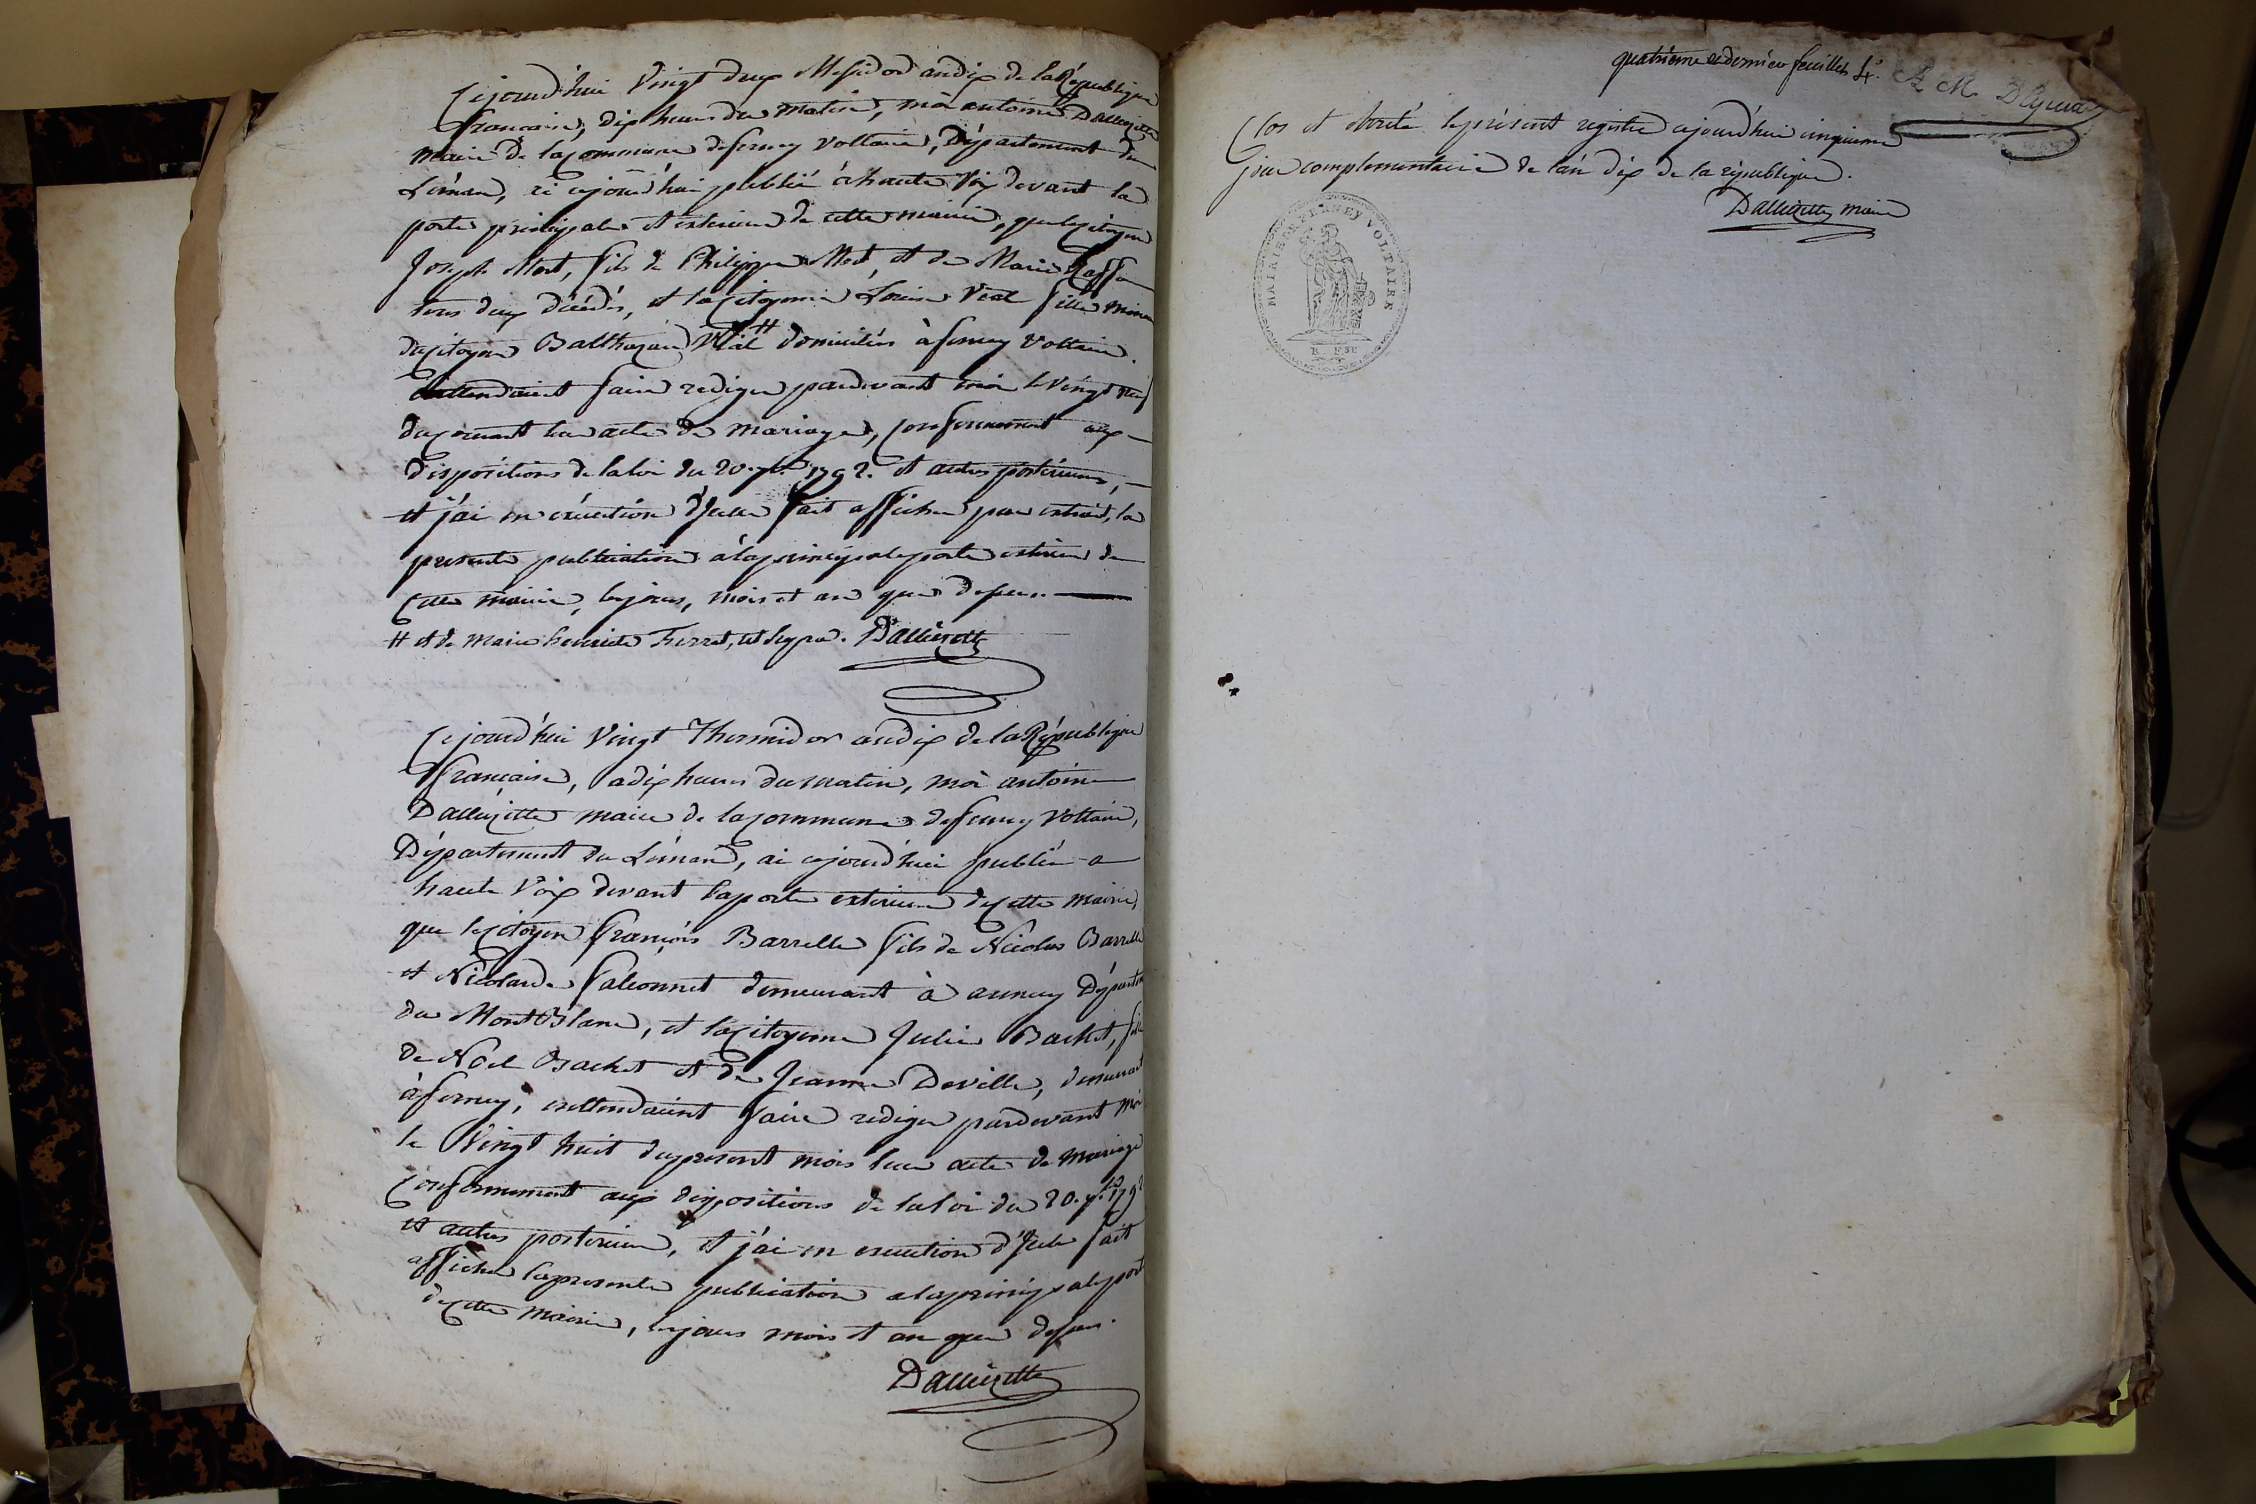 Cejourd'hui Vingt deux Messidor an dix de la République
française, dix heures du matin, moi antoine Dallizette
maire de la commune de ferney Voltaire, Département du
Léman, ai cejourd'hui publié à haute Voix devant la
porte principale et exterieure de cette mairie, que le citoyen
Joseph Mest, fils de Philippe Mest, et de Marie
tous deux décédés, et la citoyenne Louise Vial fille mineure
du citoyen Balthazard Vial # domiciliés à ferney Voltaire.
entendaient faire rediger pardevant moi le Vingt neuf
du courant leur acte de mariage, conformement aux
dispositions de la loi du 20. 7bre 1792. et autres posterieures,
et j'ai en exécution d'Icelle fait afficher par extrait, la
presente publication à la principale porte exterieure de
Cette mairie, les jours, mois et an que dessus.
# et de Marie henriette Ferret, Dallizette
Cejourd'hui Vingt Thermidor an dix de la République
française, a dix heures du matin, moi antoine
Dallizette maire de la commune de ferney Voltaire,
Département du Léman, ai cejourd'hui publié a
haute Voix devant la porte exterieure de cette mairie,
que le citoyen François Barrelle fils de Nicolas Barrelle
et Nicolarde falconnet demeurant à annecy Départem
du MontBlanc, et la citoyenne Julie Bachet, fille
de Nöel Bachet et de Jeanne Deville, demeurant
à ferney, entendaient faire rediger pardevant moi
le Vingt huit du present mois leur acte de mariage
Conformement aux dispositions de la loi du 20. 7bre 1792
et autres posterieures, et j'ai en execution d'Icelle fait
afficher la presente publication a la principale porte
de cette mairie, les jours mois et an que dessus.
Dallizette
quatrième et dernier feuillet 4e.
Clos et Arrêté le présent registre cejourd'hui cinquieme
jour complementaire de l'an dix de la république.
Dallizette maire
MAIRIE DE FERNEY VOLTAIRE
R. FSE